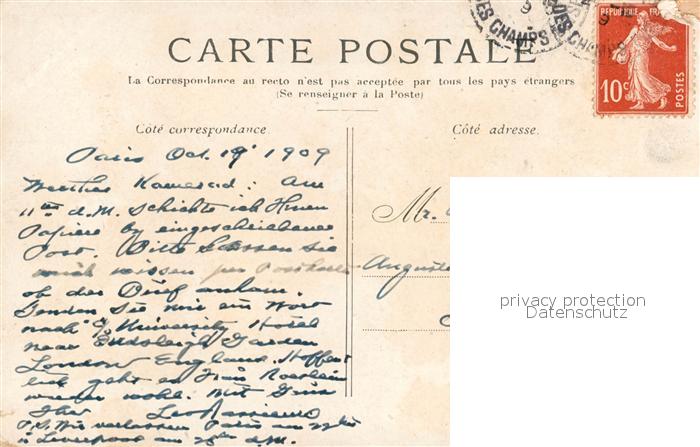 CARTE POSTALE
La Correspondance au recto n'est pas acceptée par tous les pays étrangers
(Se renseigner à la Poste)
Côté correspondance.
Côté adresse.
DES CHAMPS
REPUBLIQUE
10c
POSTES
Paris Oct. 19 1909
Werther Kamerad: Am
11ten d.M. schickte ich Ihnen
Papiere by eingeschriebener
Post. Bitte lassen sie
mich wissen per Postkarte
ob der Brief ankam.
Senden Sie mir ein Wort
nach c/o University Hotel
near Endsleigh Garden
London England. Hoffent
lich geht es Frau
wieder wohl. Mit Gruss
Ihr Leo
P.S. Wir verlassen Paris am
u Liverpool am d.M.
Mr.
Auguste
privacy protection
Datenschutz